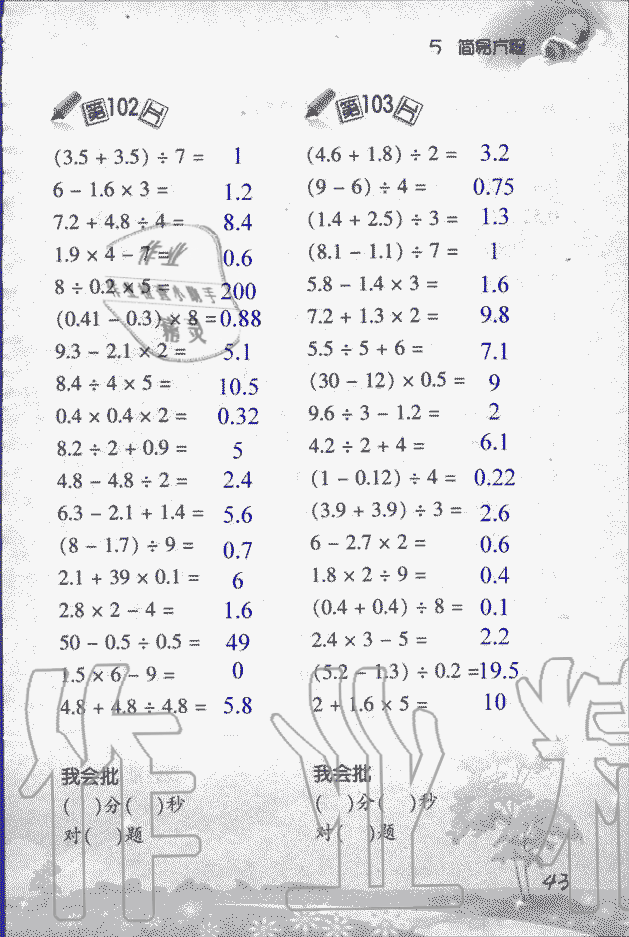 5 简易方程
第102天
(3.5 + 3.5) ÷ 7 = 1
6 - 1.6 × 3 = 1.2
7.2 + 4.8 ÷ 4 = 8.4
1.9 × 4 - 7 = 0.6
8 ÷ 0.2 × 5 = 200
(0.41 - 0.3) × 8 = 0.88
9.3 - 2.1 × 2 = 5.1
8.4 ÷ 4 × 5 = 10.5
0.4 × 0.4 × 2 = 0.32
8.2 ÷ 2 + 0.9 = 5
4.8 - 4.8 ÷ 2 = 2.4
6.3 - 2.1 + 1.4 = 5.6
(8 - 1.7) ÷ 9 = 0.7
2.1 + 39 × 0.1 = 6
2.8 × 2 - 4 = 1.6
50 - 0.5 ÷ 0.5 = 49
1.5 × 6 - 9 = 0
4.8 + 4.8 ÷ 4.8 = 5.8
我会批
( )分( )秒
对( )题
第103天
(4.6 + 1.8) ÷ 2 = 3.2
(9 - 6) ÷ 4 = 0.75
(1.4 + 2.5) ÷ 3 = 1.3
(8.1 - 1.1) ÷ 7 = 1
5.8 - 1.4 × 3 = 1.6
7.2 + 1.3 × 2 = 9.8
5.5 ÷ 5 + 6 = 7.1
(30 - 12) × 0.5 = 9
9.6 ÷ 3 - 1.2 = 2
4.2 ÷ 2 + 4 = 6.1
(1 - 0.12) ÷ 4 = 0.22
(3.9 + 3.9) ÷ 3 = 2.6
6 - 2.7 × 2 = 0.6
1.8 × 2 ÷ 9 = 0.4
(0.4 + 0.4) ÷ 8 = 0.1
2.4 × 3 - 5 = 2.2
(5.2 - 1.3) ÷ 0.2 = 19.5
2 + 1.6 × 5 = 10
我会批
( )分( )秒
对( )题
43
作业精